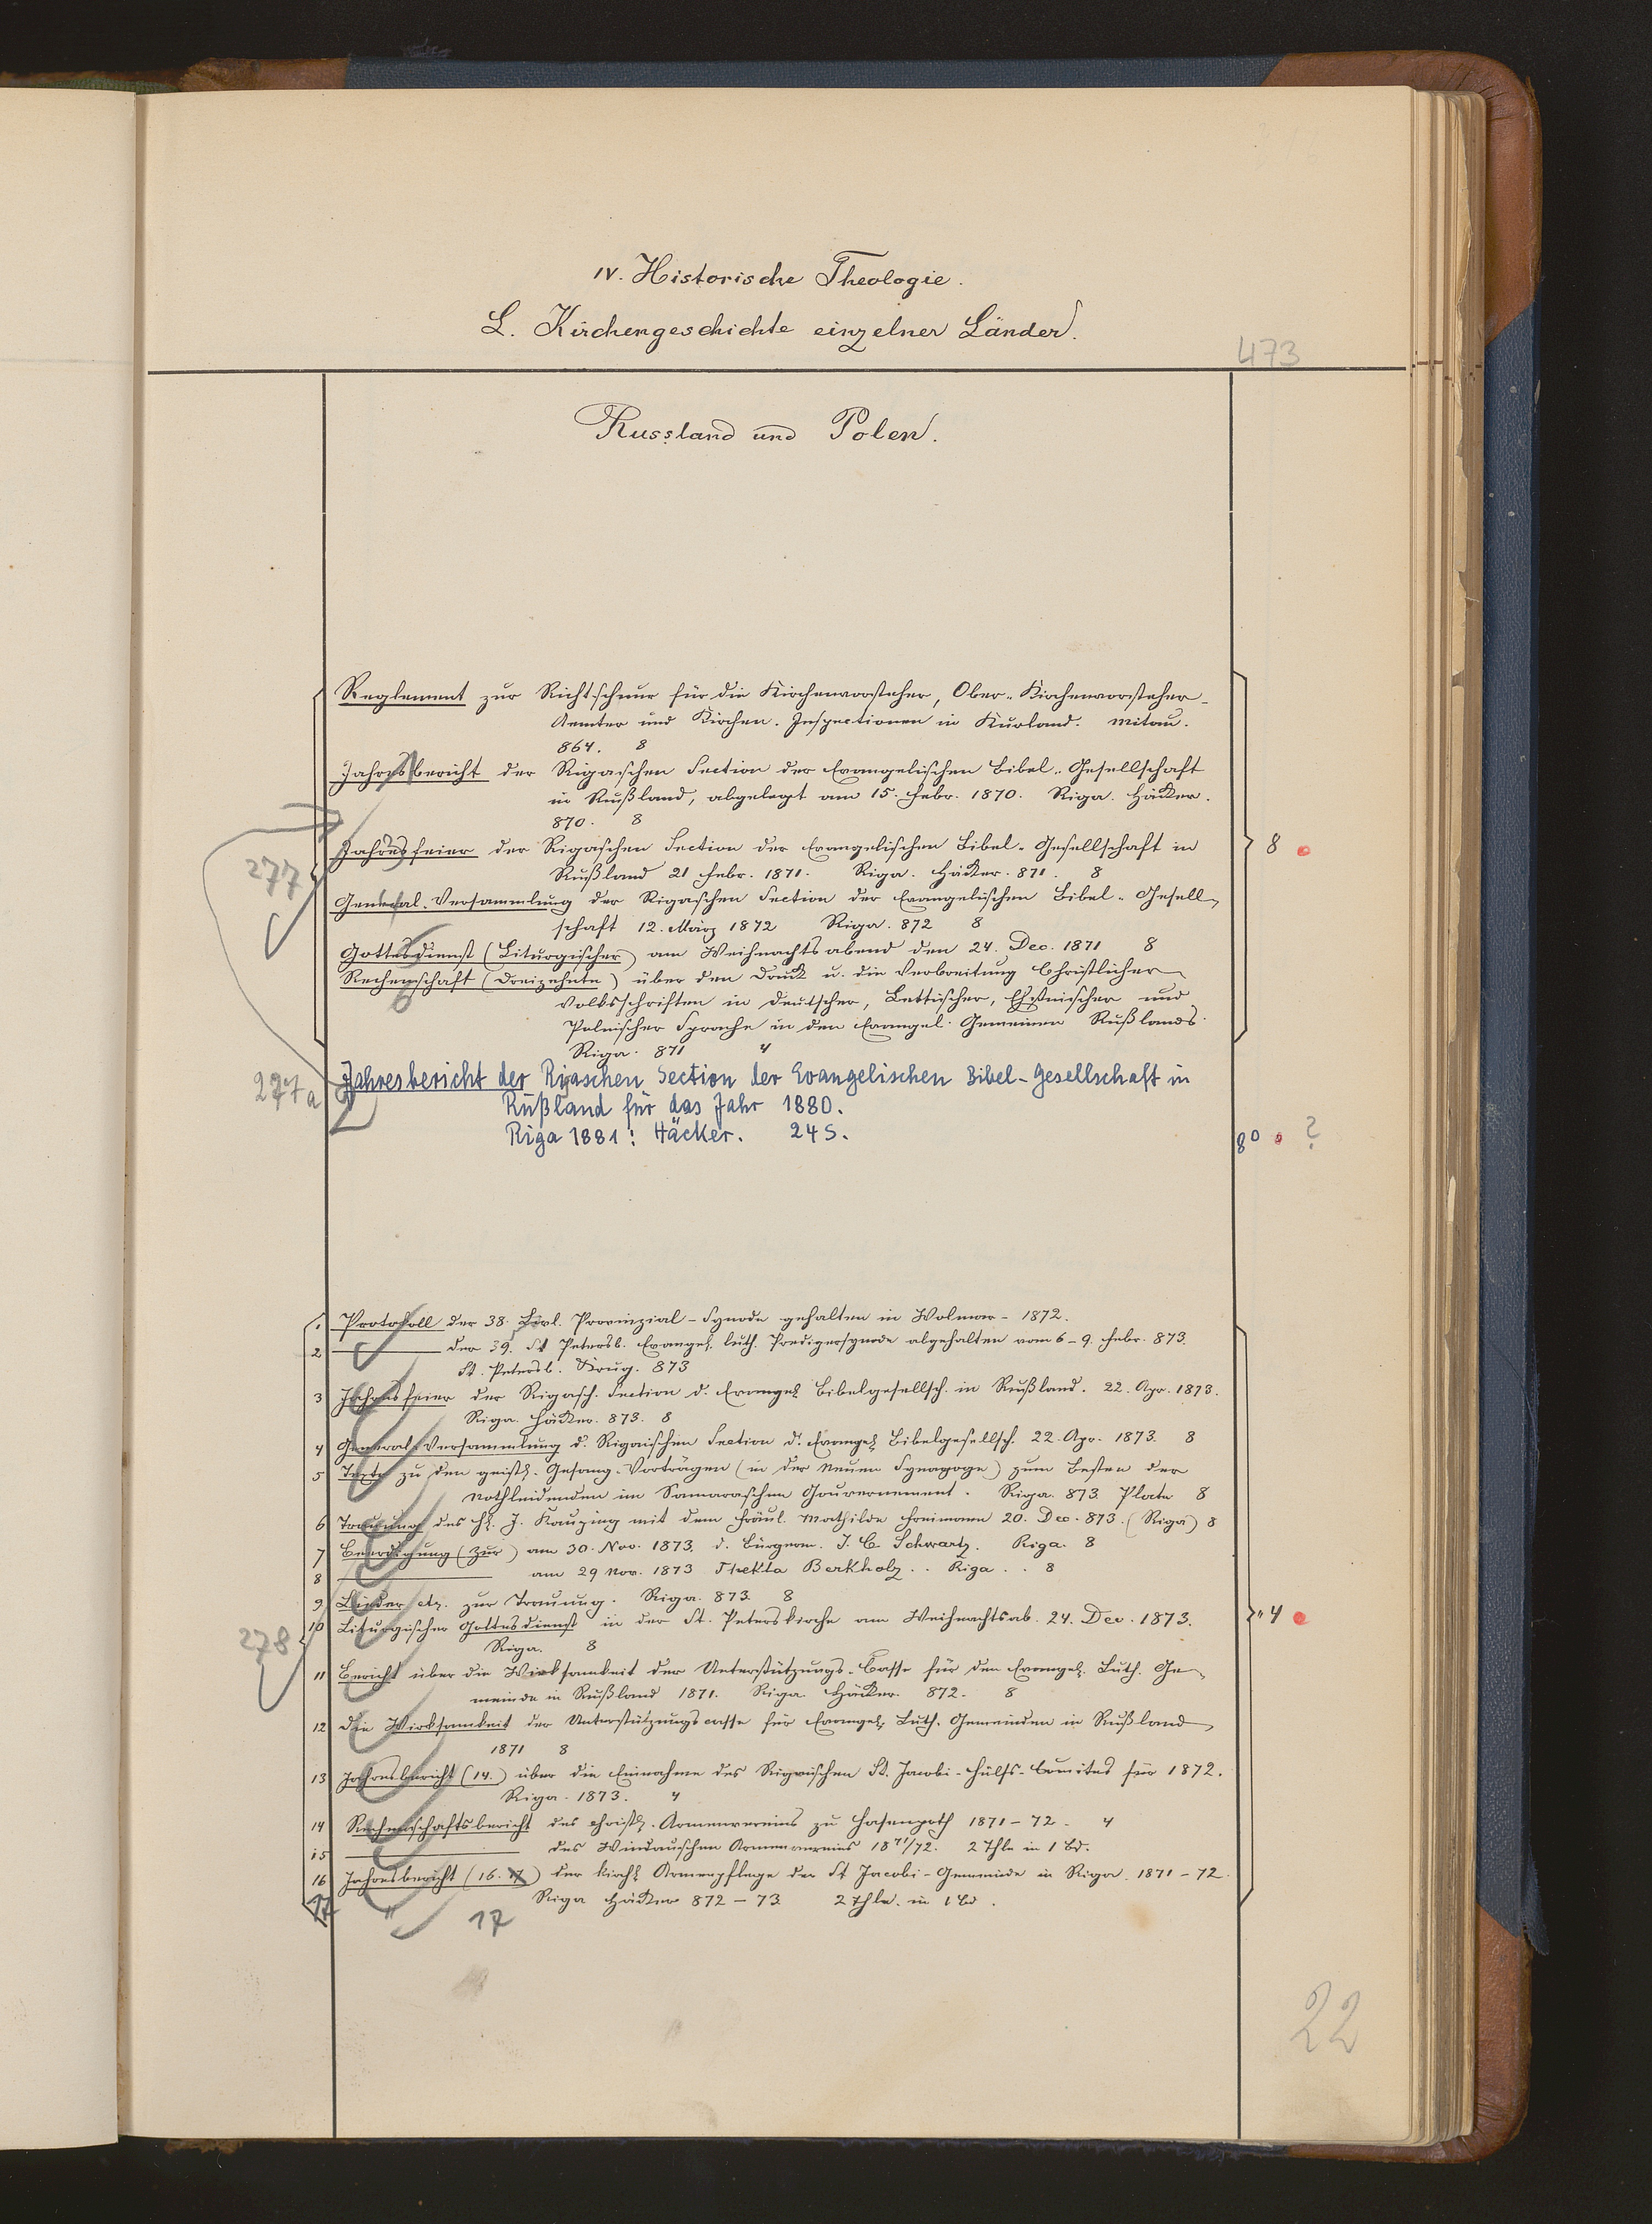 IV. Historische Theologie.
L. Kirchengeschichte einzelner Länder.
473
Russland und Polen.
Reglement zur Richtschnur für die Kirchenvorsteher, Ober-Kirchenvorsteher-
Aemter und Kirchen-Inspectionen in Kurland. Mitau.
864. 8
Jahresbericht der Rigaschen Section der Evangelischen Bibel-Gesellschaft
in Rußland, abgelegt am 15. Febr. 1870. Riga. Häcker.
870. 8
Jahresfeier der Rigaschen Section der Evangelischen Bibel-Gesellschaft in
8
277
Rußland 21 Febr. 1871. Riga. Häcker. 871. 8
General-Versammlung der Rigaschen Section der Evangelischen Bibel-Gesell-
schaft 12. März 1872 Riga. 872 8
Gottesdienst (Liturgischer) am Weihnachtsabend den 24. Dec. 1871 8
Rechenschaft (Dreizehnte) über den Druck u. die Verbreitung Christlicher
Volksschriften in Deutscher, Lettischer, Ehstnischer und
Polnischer Sprache in den Evangel. Gemeinen Rußlands.
Riga. 871 4
277a
Jahresbericht der Rigaschen Section der Evangelischen Bibel-Gesellschaft in
Rußland für das Jahr 1880.
Riga 1881: Häcker. 24 S.
8° ?
1 Protokoll der 38. Livl. Provinzial-Synode gehalten in Wolmar - 1872.
2 der 39. St Petersb. Evangel. luth. Predigersynode abgehalten vom 6-9. Febr. 873.
St. Petersb. Krug. 873
3 Jahresfeier der Rigasch. Section d. Evangel. Bibelgesellsch. in Rußland. 22. Apr. 1873.
Riga. Häcker. 873. 8
4 General-Versammlung d. Rigaischen Section d. Evangel. Bibelgesellsch. 22. Apr. 1873. 8
5 Texte zu den geistl. Gesang-Vorträgen (in der Neuen Synagoge) zum Besten der
Nothleidenden im Samaraschen Gouvernement. Riga. 873. Plates 8
6 Trauung des H. J. Kauzing mit dem Fräul. Mathilde Freimann 20. Dec. 873. (Riga) 8
7 Beerdigung (Zur) am 30. Nov. 1873. d. Bürgerm. J. C. Schwartz. Riga. 8
8 am 29 Nov. 1873 Thekla Berkholz. . Riga . . 8
9 Lieder etc. zur Trauung. Riga. 873. 8
10 Liturgischer Gottesdienst in der St. Peterskirche am Weihnachtsab. 24. Dec. 1873.
" 4
278
Riga. 8
11 Bericht über die Wirksamkeit der Unterstützungs-Casse für den Evangel. Luth. Ge-
meinde in Rußland 1871. Riga. Häcker. 872. 8
12 Die Wirksamkeit der Unterstützungscasse für Evangel. Luth. Gemeinden in Rußland
1871 8
13 Jahresbericht (14.) über die Einnahme des Rigaischen St. Jacobi-Hülfs-Comités für 1872.
Riga. 1873. 4
14 Rechenschaftsbericht des christl. Armenvereins zu Hasenpoth 1871-72. 4
15 des Windauschen Armenvereins 1871/72. 2 Thle in 1 Bd.
16 Jahresbericht (16. 17) der kirchl. Armenpflege der St Jacobi-Gemeinde in Riga. 1871-72.
17 " Riga Häcker 872-73 2 Thle. in 1 Bd.
17
22